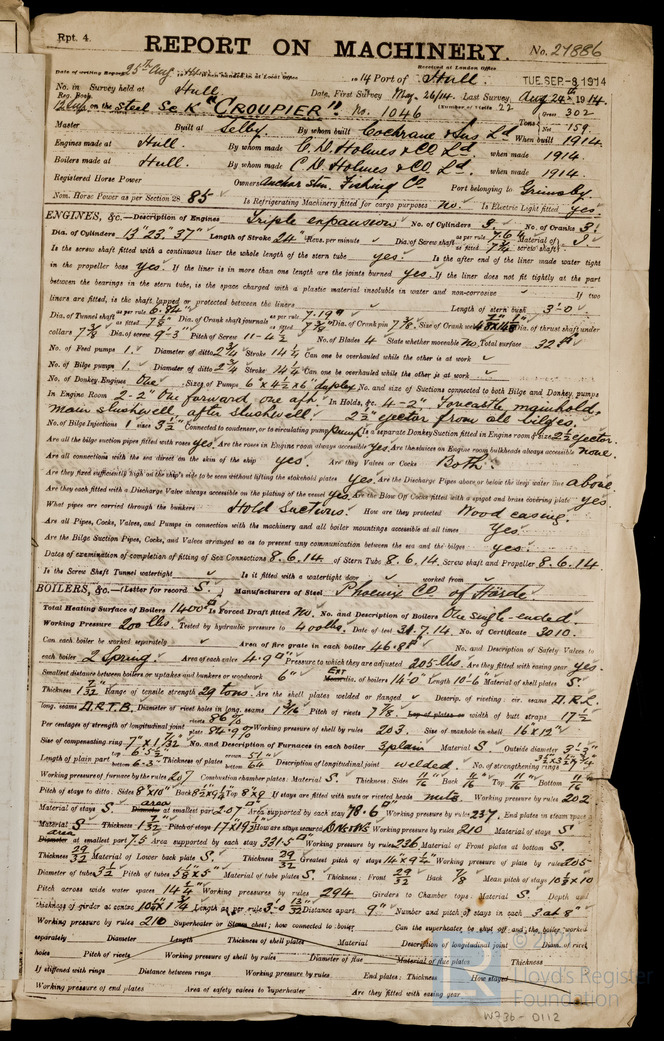 Rpt. 4.
REPORT ON MACHINERY.
No. 27886
Received at London Office
TUE. SEP. 8, 1914
Date of writing Report 25th Aug 14 Port of Hull.
No. in Survey held at Hull Date, First Survey May 26/14. Last Survey Aug 24th 1914.
Reg. Book. (Number of Visits 22
on the Steel Sc. K "CROUPIER". No. 1046 Tons Gross 302 Net 159.
Master Built at Selby By whom built Cochrane & Sons Ld. When built 1914.
Engines made at Hull. By whom made C. D. Holmes & Co. Ld. when made 1914.
Boilers made at Hull. By whom made C. D. Holmes & Co. Ld. when made 1914.
Registered Horse Power Owners Anchor Stm. Fishing Co Port belonging to Grimsby.
Nom. Horse Power as per Section 28 85 Is Refrigerating Machinery fitted for cargo purposes no. Is Electric Light fitted yes.
ENGINES, &c.—Description of Engines Triple expansion No. of Cylinders 3 No. of Cranks 3
Dia. of Cylinders 13" 23" 37" Length of Stroke 24" Revs. per minute Dia. of Screw shaft as per rule 7.64 as fitted 7¾ Material of screw shaft S
Is the screw shaft fitted with a continuous liner the whole length of the stern tube yes. Is the after end of the liner made water tight
in the propeller boss yes. If the liner is in more than one length are the joints burned yes. If the liner does not fit tightly at the part
between the bearings in the stern tube, is the space charged with a plastic material insoluble in water and non-corrosive If two
liners are fitted, is the shaft lapped or protected between the liners Length of stern bush 3'-0
Dia. of Tunnel shaft as per rule 6.84" as fitted 7½" Dia. of Crank shaft journals as per rule 7.19" as fitted 7⅜" Dia. of Crank pin 7⅜" Size of Crank webs Dia. of thrust shaft under
collars 7⅜ Dia. of screw 9'-3" Pitch of Screw 11-4½ No. of Blades 4 State whether moveable no. Total surface 32
No. of Feed pumps 1. Diameter of ditto 2¾ Stroke 14¼ Can one be overhauled while the other is at work
No. of Bilge pumps 1. Diameter of ditto 2¾ Stroke 14¼ Can one be overhauled while the other is at work
No. of Donkey Engines One Sizes of Pumps 6" x 4½ x 6" duplex No. and size of Suctions connected to both Bilge and Donkey pumps
In Engine Room 2-2" One forward, one aft. In Holds, &c. 4-2" Forecastle, manhold,
main slushwell, after slushwell 2½" ejector from all bilges.
No. of Bilge Injections 1 sizes 3½" Connected to condenser, or to circulating pump pump Is a separate Donkey Suction fitted in Engine room & size 2½ ejector.
Are all the bilge suction pipes fitted with roses yes. Are the roses in Engine room always accessible yes. Are the sluices on Engine room bulkheads always accessible none.
Are all connections with the sea direct on the skin of the ship yes. Are they Valves or Cocks Both.
Are they fixed sufficiently high on the ship's side to be seen without lifting the stokehold plates Yes. Are the Discharge Pipes above or below the deep water line above.
Are they each fitted with a Discharge Valve always accessible on the plating of the vessel yes. Are the Blow Off Cocks fitted with a spigot and brass covering plate yes.
What pipes are carried through the bunkers Hold Suctions. How are they protected Wood casing.
Are all Pipes, Cocks, Valves, and Pumps in connection with the machinery and all boiler mountings accessible at all times Yes.
Are the Bilge Suction Pipes, Cocks, and Valves arranged so as to prevent any communication between the sea and the bilges yes.
Dates of examination of completion of fitting of Sea Connections 8.6.14. of Stern Tube 8.6.14. Screw shaft and Propeller 8.6.14.
Is the Screw Shaft Tunnel watertight Is it fitted with a watertight door worked from
BOILERS, &c.—(Letter for record S.) Manufacturers of Steel Phoenix Co. of Hörde.
Total Heating Surface of Boilers 1400 Is Forced Draft fitted no. No. and Description of Boilers One single-ended.
Working Pressure 200 lbs. Tested by hydraulic pressure to 400 lbs. Date of test 31.7.14. No. of Certificate 3010.
Can each boiler be worked separately Area of fire grate in each boiler 46.8 No. and Description of Safety Valves to
each boiler 2 Spring. Area of each valve 4.9 Pressure to which they are adjusted 205 lbs. Are they fitted with easing gear yes.
Smallest distance between boilers or uptakes and bunkers or woodwork 6" Ext dia. of boilers 14'-0" Length 10-6" Material of shell plates S.
Thickness 1 7/32 Range of tensile strength 29 tons. Are the shell plates welded or flanged Descrip. of riveting: cir. seams D.R.L.
long. seams D.R.T.B. Diameter of rivet holes in long. seams 1 3/16 Pitch of rivets 7⅞. Lap of plates or width of butt straps 17½
Per centages of strength of longitudinal joint rivets 86% plate 84.9% Working pressure of shell by rules 203. Size of manhole in shell 16" x 12"
Size of compensating ring 7" x 1 7/32" No. and Description of Furnaces in each boiler 3 plain Material S Outside diameter 3'-3"
Length of plain part top 6-5½ bottom 6-3" Thickness of plates crown bottom Description of longitudinal joint welded. No. of strengthening rings
Working pressure of furnace by the rules 207 Combustion chamber plates: Material S. Thickness: Sides 11/16 Back 11/16 Top 11/16 Bottom 11/16
Pitch of stays to ditto: Sides 8" x 10" Back 8½" x 9½ Top 8" x 9 If stays are fitted with nuts or riveted heads nuts. Working pressure by rules 202
Material of stays S area at smallest part 2.07 Area supported by each stay 78.6 Working pressure by rules 237. End plates in steam space
Material S Thickness 1 7/32 Pitch of stays 17" x 19½ How are stays secured D.Nuts & W. Working pressure by rules 210 Material of stays S.
area at smallest part 7.5 Area supported by each stay 331.5 Working pressure by rules 236 Material of Front plates at bottom S.
Thickness 29/32 Material of Lower back plate S. Thickness 29/32 Greatest pitch of stays 14" x 9½" Working pressure of plate by rules 205
Diameter of tubes 3½ Pitch of tubes 5⅛ x 5" Material of tube plates S. Thickness: Front 29/32 Back ⅞ Mean pitch of stays 10⅛ x 10
Pitch across wide water spaces 14¼" Working pressures by rules 294 Girders to Chamber tops: Material S. Depth and
thickness of girder at centre Length as per rule Distance apart 9" Number and pitch of stays in each 3 at 8"
Working pressure by rules 210 Superheater or Steam chest; how connected to boiler Can the superheater be shut off and the boiler worked
separately Diameter Length Thickness of shell plates Material Description of longitudinal joint Diam. of rivet
holes Pitch of rivets Working pressure of shell by rules Diameter of flue Material of flue plates Thickness
If stiffened with rings Distance between rings Working pressure by rules End plates: Thickness How stayed
Working pressure of end plates Area of safety valves to superheater Are they fitted with easing gear
© 2021
Lloyd's Register
Foundation
W736-0112